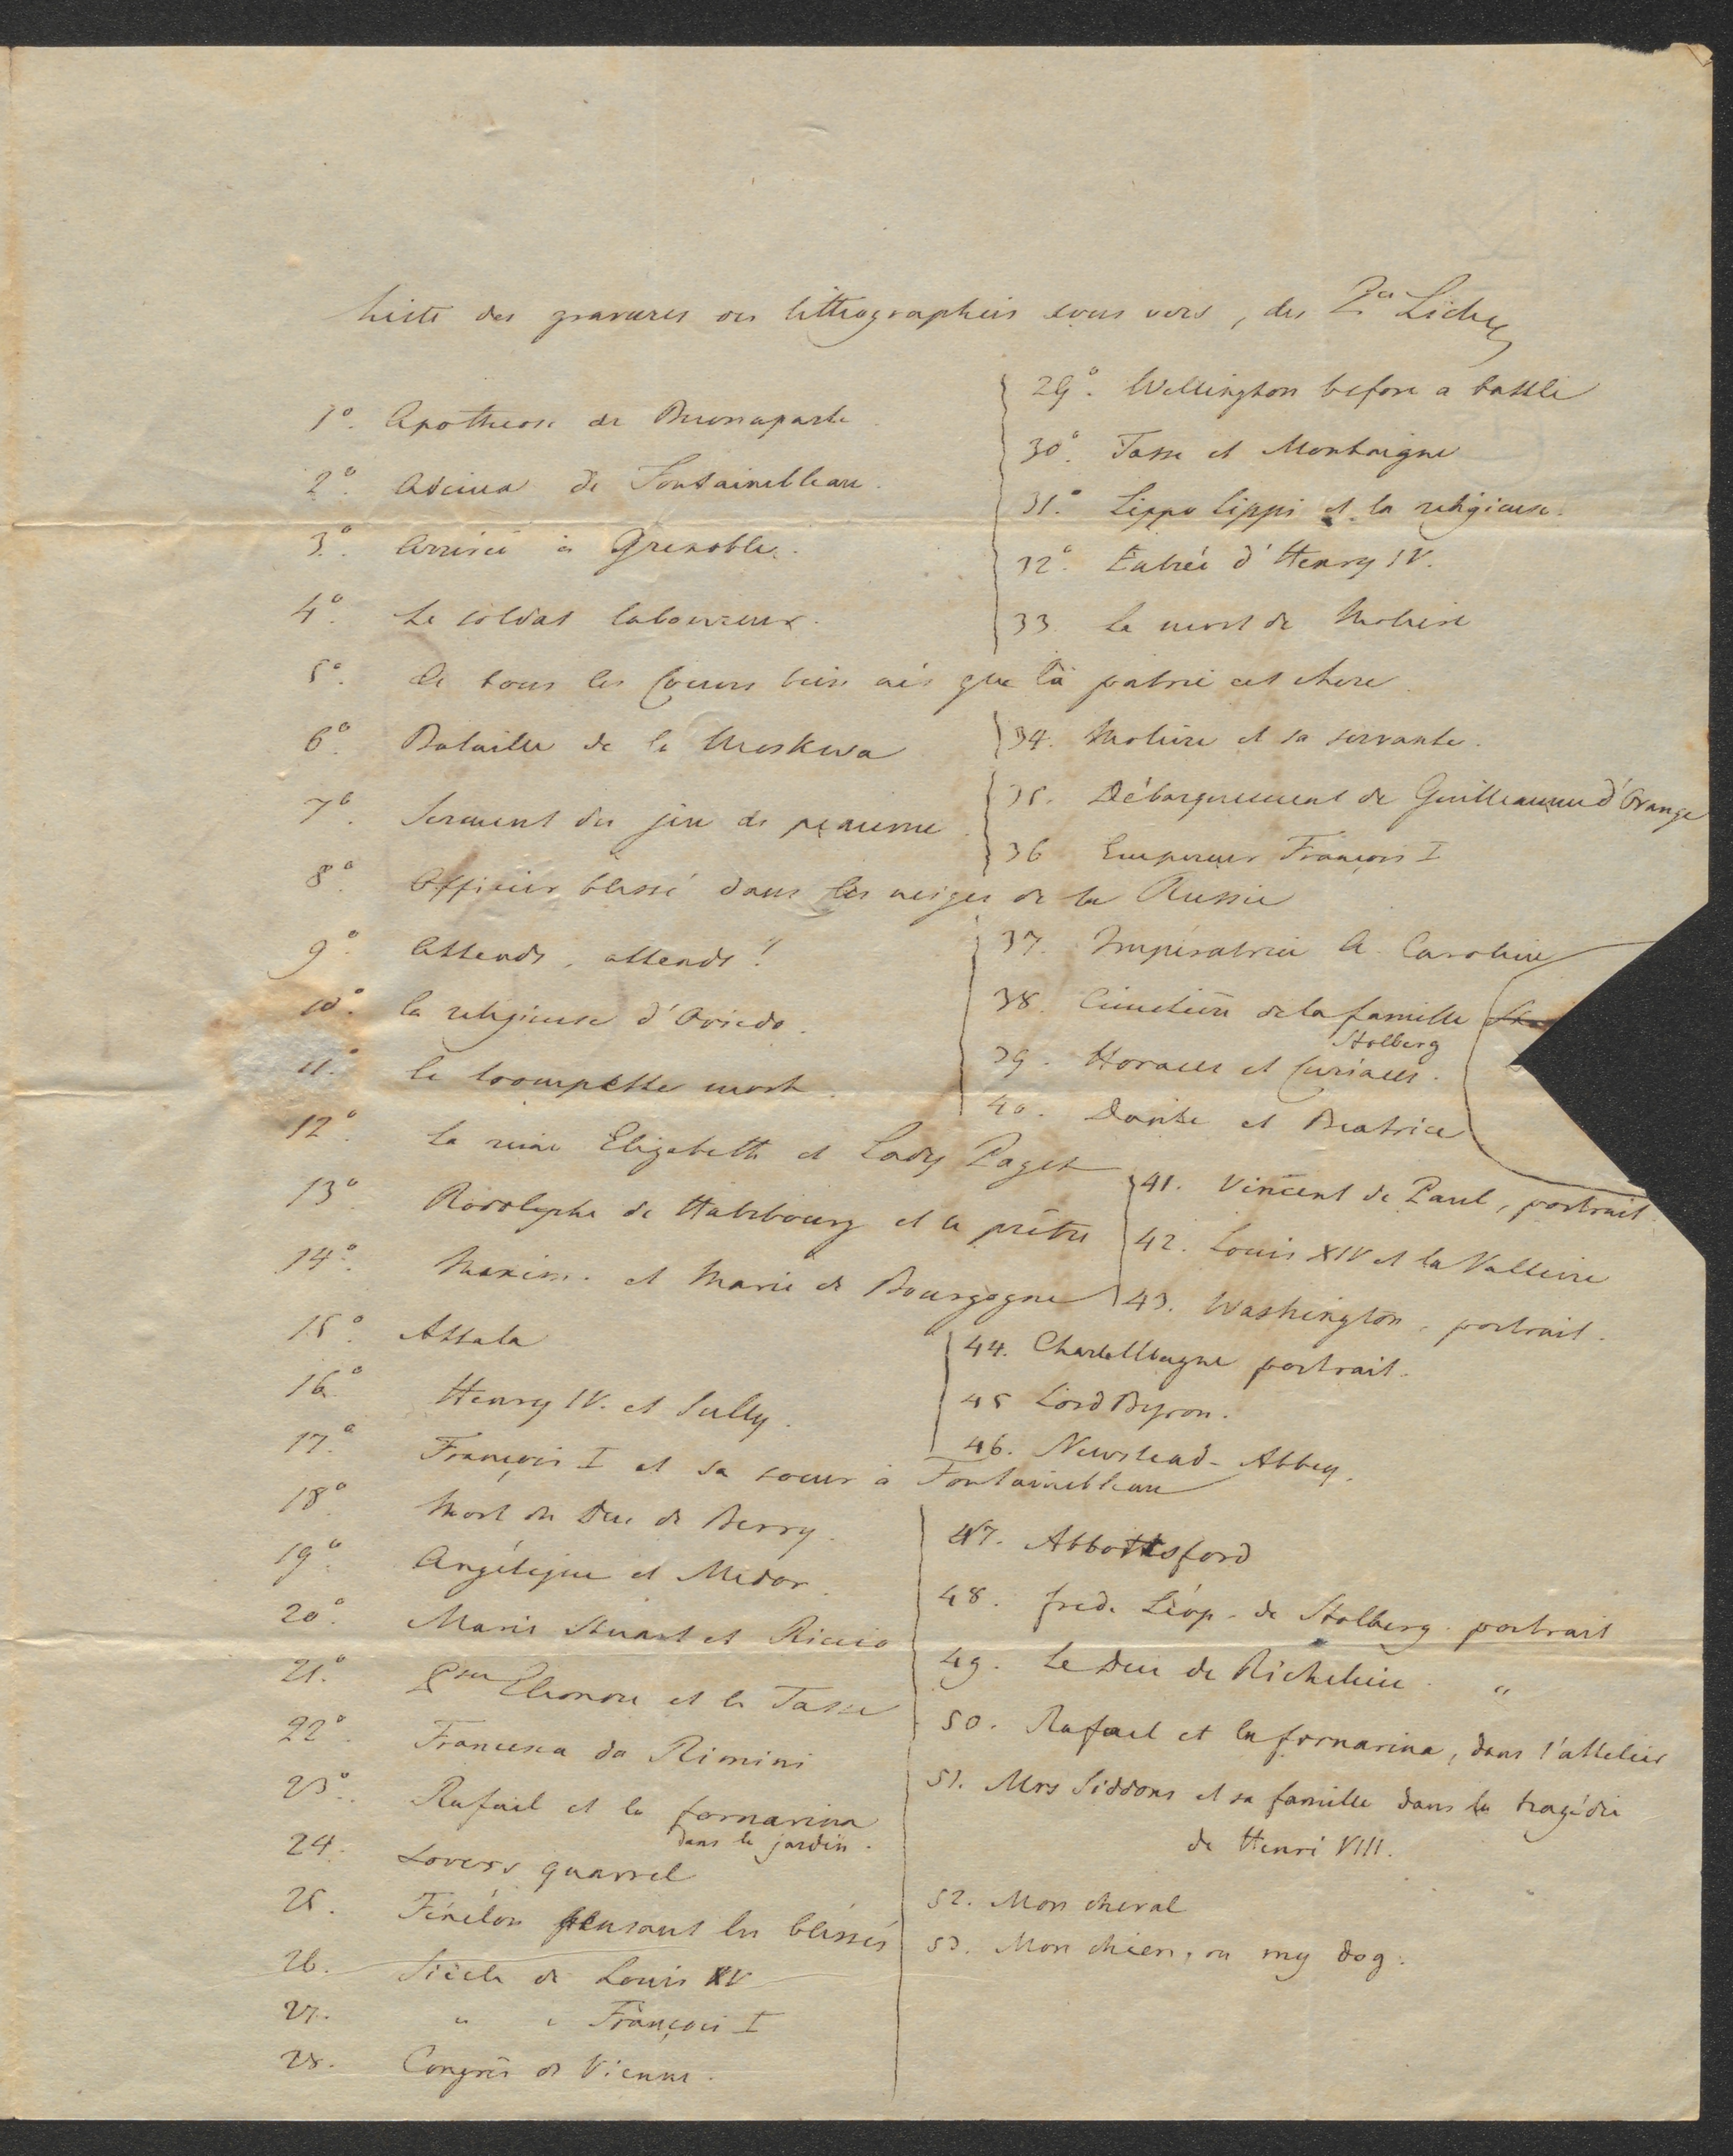 Liste des gravures ou litthographies sous vers, des
1º. Apotheose de Buonaparte.
2º. Adieux de Fontainebleau.
3º. Arrivée à Grenoble.
4º. Le soldat laboureur.
5º. A tous les Coeurs bien nés que la patrie est chere.
6º. Bataille de la Moskwa
7º. Serment du jeu de paume.
8º. Officier blessé dans les neiges de la Russie
9º. Attends, attends!
10º. la religieuse d'Oviedo.
11º. le trompette mort.
12º. La reine Elizabeth et Lady Paget
13º. Rodolphe de Habsbourg et le prêtre
14º. Maxim. et Marie de Bourgogne
15º. Attala
16º. Henry IV. et Sully.
17º. François I et sa soeur à Fontainebleau
18º. Mort du Duc de Berry.
19º. Angélique et Medor.
20º. Marie Stuart et Riccio
21º. Eleonore et le Tasse
22º. Francesca da Rimini
23º. Rafael et la fornarina
dans le jardin.
24. Lovers quarrel
25. Fénélon pensant les blessés
26. Siècle de Louis XV
27. " " François I
28. Congrès de Vienne.
29º. Wellington before a battle
30º. Tasse et Montaigne
31º. Lippo Lippi et la religieuse.
32º. Entrée d'Henry IV.
33. La mort de Moliere
34. Moliere et sa servante.
35. Débarquement de Guilleaume d'Orange
36 Empereur François I
37. Impératrice A. Caroline
38. Cimetière de la famille
Stolberg
39. Horaces et Curiaces.
40. Dante et Beatrice
41. Vincent de Paul, portrait.
42. Louis XIV et la Valliere
43. Washington, portrait.
44. CharleMagne portrait.
45 Lord Byron.
46. Newstead-Abbey.
47. Abbottsford
48. fréd. Léop. de Stolberg. portrait
49. Le Duc de Richelieu. "
50. Rafael et la fornarina, dans l'attelier
51. Mrs Siddons et sa famille dans la tragédie
de Henri VIII.
52. Mon cheval
53. Mon chien, ou my dog.